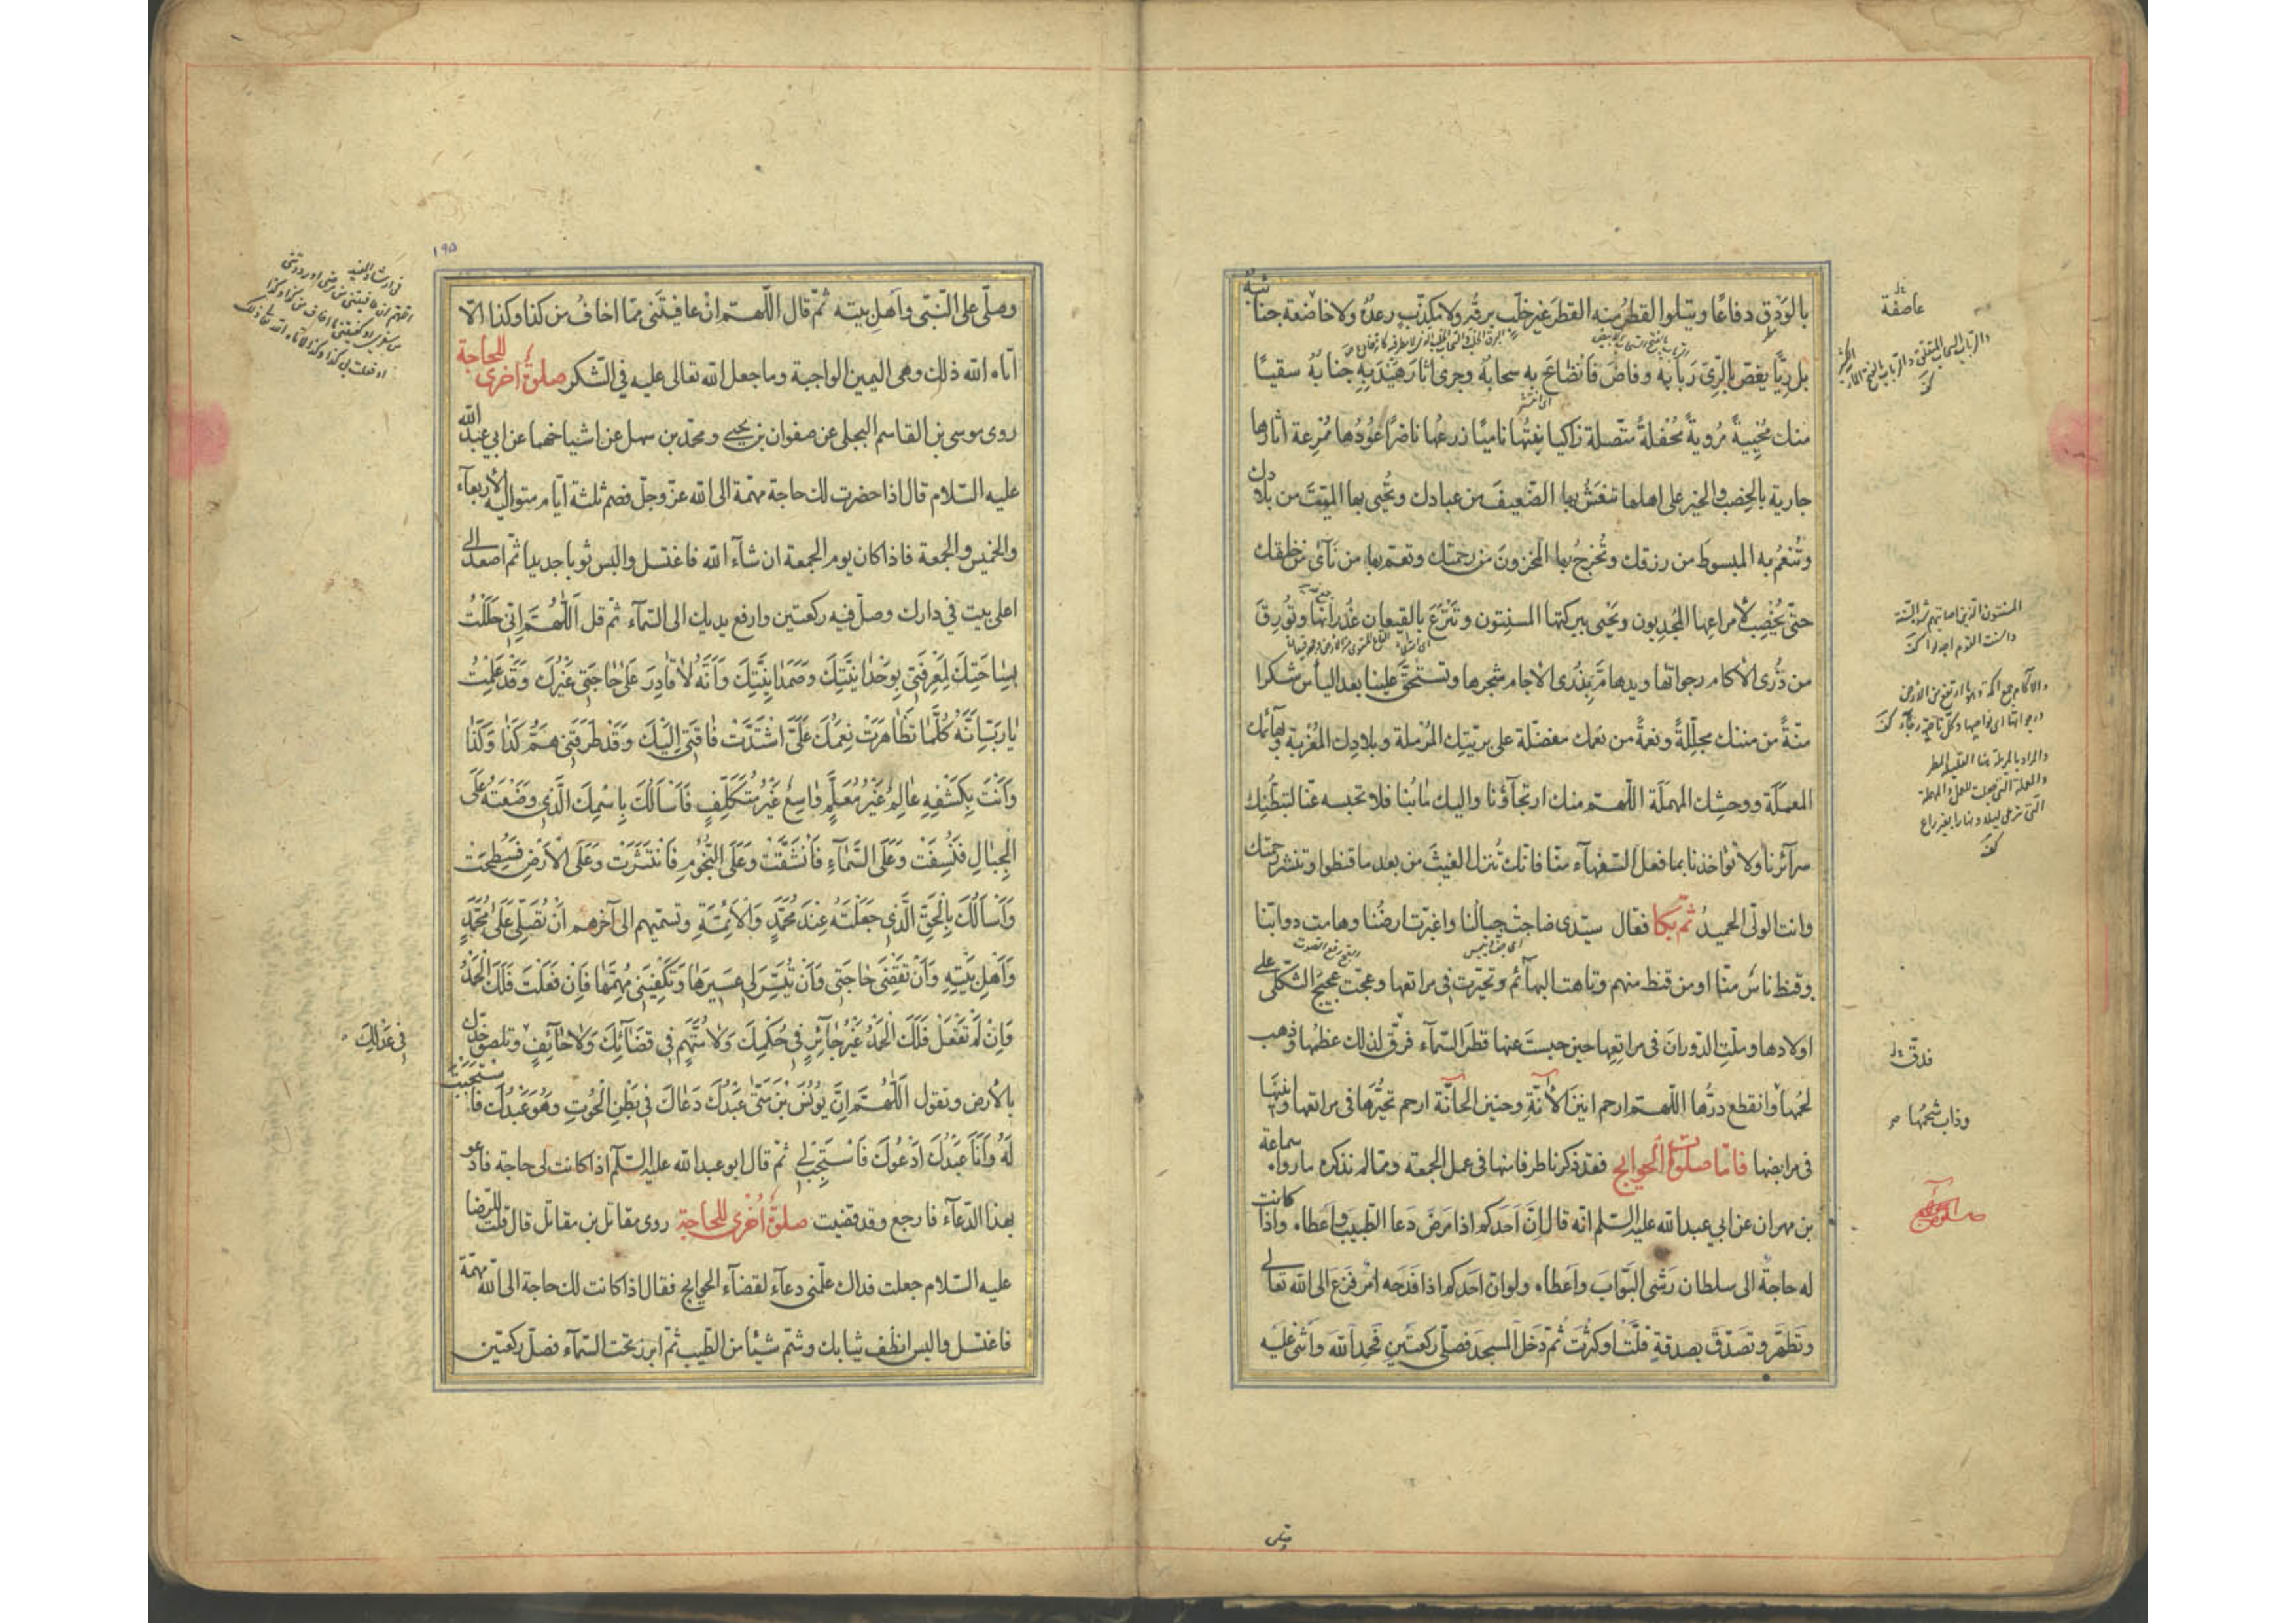 بالودق دفاعا ويتلوا القطر منه القطر غير خلب برقه ولا مكذب رعده ولا عاصفة جنائبه
بل ريا يغص بالري ربابه وفاض فانضاع به سحابه وجرى اثار هيدبه جنابه سقيا
منك محيية مروية محفلة متصلة زاكيا نبتها ناميا زرعها ناضرا عودها ممرعة اثارها
جارية بالخصب والخير على اهلها تنعش بها الضعيف من عبادك وتحيى بها الميت من بلادك
وتنعم به المبسوط من رزقك وتخرج بها المخزون من رحمتك وتعم بها من نآى من خلقك
حتى يخصب لامراعها المجدبون ويحيى ببركتها المسنتون وتترع بالقيعان غدرانها وتورق
من ذرى الاكام رجواتها ويدهام بذرى الاجام شجرها وتستحق علينا بعد اليأس شكرا
منة من مننك مجللة ونعمة من نعمك مفضلة على بريتك المرملة وبلادك المغربة وبهائمك
المعملة ووحشك المهملة اللهم منك ارتجاؤنا واليك مآبنا فلا تحبسه عنا لتبطنك
سرآئرنا ولا تؤاخذنا بما فعل السفهآء منا فانك تنزل الغيث من بعد ما قنطوا وتنشر رحمتك
وانت الولى الحميد ثم بكا فقال سيدى صاحت جبالنا واغبرت ارضنا وهامت دوابنا
وقنط ناس منا او من قنط منهم وتاهت البهآئم وتحيرت فى مراتعها وعجت عجيج الثكلى على
اولادها وملت الدوران فى مراتعها حين حبست عنها قطر السمآء فرق لذلك عظمها وذهب
لحمها وانقطع درها اللهم ارحم انين الآنة وحنين الحآنة ارحم تحيرها فى مراتعها وانينها
فى مرابضها فاما صلوات الحوايج فقد ذكرنا طرفا منها فى عمل الجمعة ومما لم نذكره ما رواه سماعة
بن مهران عن ابي عبد الله عليه السلم انه قال ان احدكم اذا مرض دعا الطبيب واعطاه واذا كانت
له حاجة الى سلطان رشى البواب واعطاه ولو ان احدكم اذا فدحه امر فزع الى الله تعالى
وتطهر وتصدق بصدقة قلت او كثرت ثم دخل المسجد فصلى ركعتين فحمد الله واثنى عليه
عاصفة
المسنتون الذين اصابتهم شدة السنة
والمراد بالمرملة هنا القليلة المطر
التى ترعى ليلا ونهارا بغير راع
فدق
وذاب شحمها
وصلى
١٩٥
وصلى على النبى واهل بيته ثم قال اللهم ان عافيتنى مما اخاف من كذا وكذا الا
اتاه الله ذلك وهى اليمين الواجبة وما جعل الله تعالى عليه فى الشكر صلوة اخرى للحاجة
روى موسى بن القاسم البجلى عن صفوان بن يحيى ومحمد بن سهل عن اشياخهما عن ابي عبد الله
عليه السلام قال اذا حضرت لك حاجة مهمة الى الله عز وجل فصم ثلثة ايام متوالية الاربعآء
والخميس والجمعة فاذا كان يوم الجمعة ان شآء الله فاغتسل والبس ثوبا جديدا ثم اصعد الى
اعلى بيت في دارك وصل فيه ركعتين وارفع يديك الى السمآء ثم قل اللهم انى حللت
بساحتك لمعرفتى بوحدانيتك وصمدانيتك وانه لا قادر على حاجتى غيرك وقد علمت
يا رب انه كلما تظاهرت نعمك على اشتدت فاقتى اليك وقد طرقنى هم كذا وكذا
وانت بكشفه عالم غير معلم واسع غير متكلف فاسألك باسمك الذى وضعته على
الجبال فنسفت وعلى السمآء فانشقت وعلى النجوم فانتثرت وعلى الارض فسطحت
واسألك بالحق الذى جعلته عند محمد والائمة وتسميهم الى آخرهم ان تصلى على محمد
واهل بيته وان تقضى حاجتى وان تيسر لى عسيرها وتكفينى مهمها فان فعلت فلك الحمد
وان لم تفعل فلك الحمد غير جآئر فى حكمك ولا متهم فى قضآئك ولا حآئف وتلصق خدك
بالارض وتقول اللهم ان يونس بن متى عبدك دعاك فى بطن الحوت وهو عبدك فاستجبت
له وانا عبدك ادعوك فاستجب لى ثم قال ابو عبد الله عليه السلم اذا كانت لى حاجة فادعو
بهذا الدعآء فارجع وقد قضيت صلوة اخرى للحاجة روى مقاتل بن مقاتل قال قلت للرضا
عليه السلام جعلت فداك علمنى دعآء لقضآء الحوايج فقال اذا كانت لك حاجة الى الله مهمة
فاغتسل والبس انظف ثيابك وشم شيئا من الطيب ثم ابرز تحت السمآء فصل ركعتين
فى عدلك